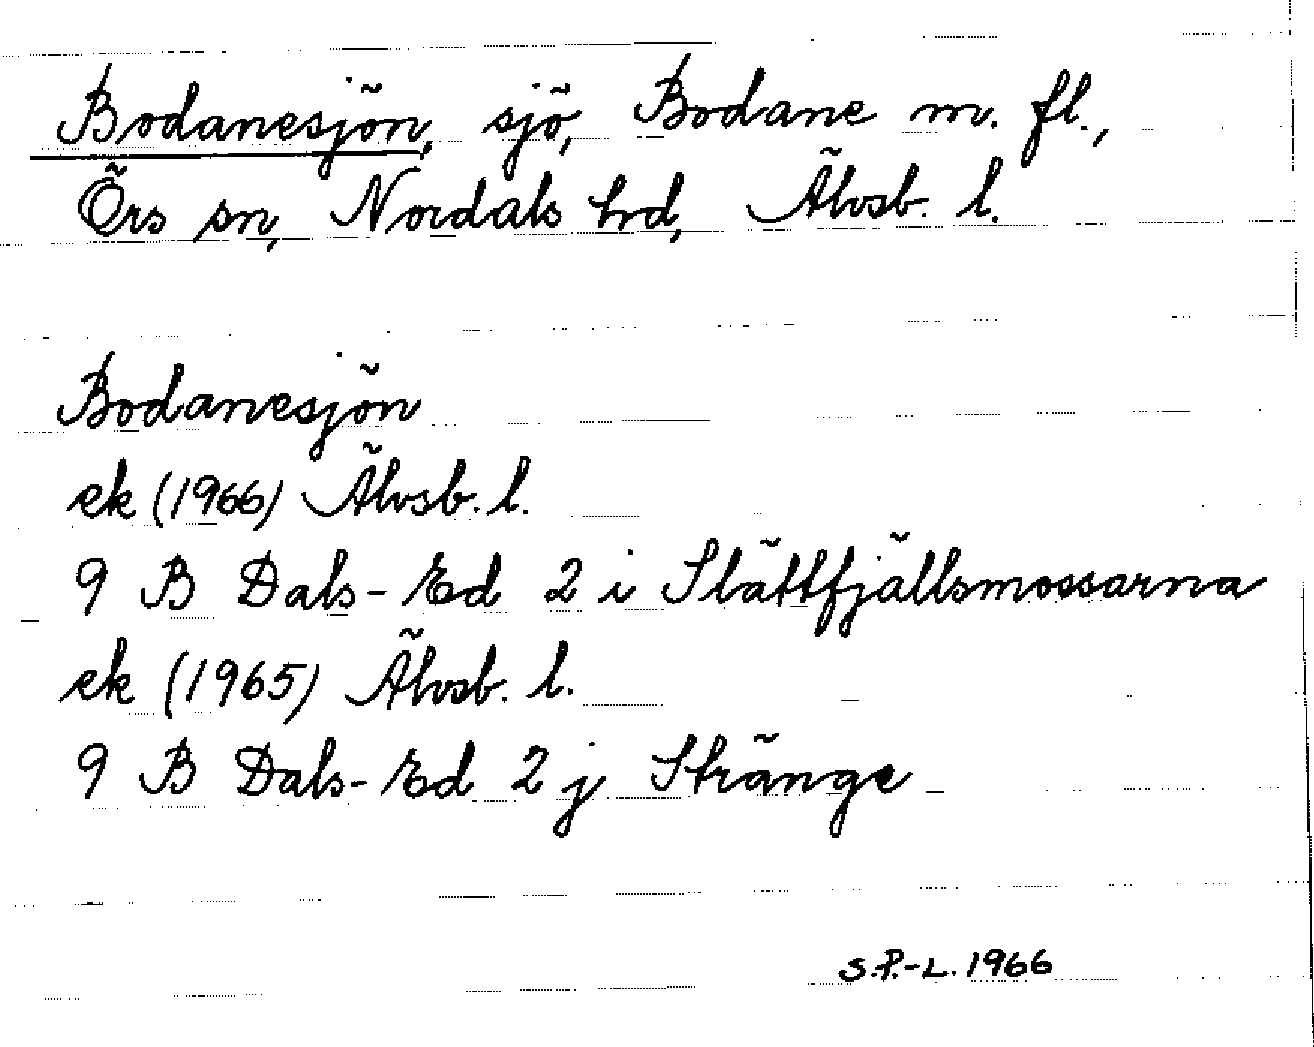 Bodanesjön, sjö, Bodane m. fl.,
Örs sn, Nordals hrd, Älvsb. l.
Bodanesjön
ek (1966) Älvsb. l.
9 B Dals-Ed 2 i Slättfjällsmossarna
ek (1965) Älvsb. l.
9 B Dals-Ed 2 j Stränge
S.P.-L. 1966